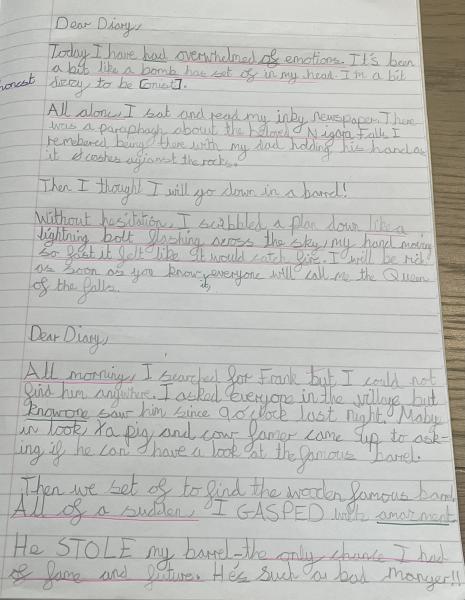 Dear Diary,
Today I have had overwhelmed of emotions. It's been
a bit like a bomb has set of in my head. I'm a bit
dizzy, to be [onist].
honest
All alone, I sat and read my inky newspaper. There
was a paraphagh about the beloved Nigara Falls. I
rembered being there with my dad holding his hand as
it scashes against the rocks.
Then I thought I will go down in a barrel!
Without hesitation, I scribbled a plan down like a
lightning bolt flashing across the sky, my hand moving
so fast it felt like it would catch fire. I will be rich
as soon as you know it, everyone will call me the Queen
of the falls.
Dear Diary,
All morning, I searched for Frank but I could not
find him anywhere. I asked everyone in the village but
knowone saw him since 9 o'clock last night. Maby
in took, a pig and cow famer came up to ask-
ing if he can have a look at the famous barrel.
Then we set of to find the wooden famous barrel.
All of a sudden, I GASPED with amazment
He STOLE my barrel-the only chance I had
of fame and future. He's such a bad manger!!